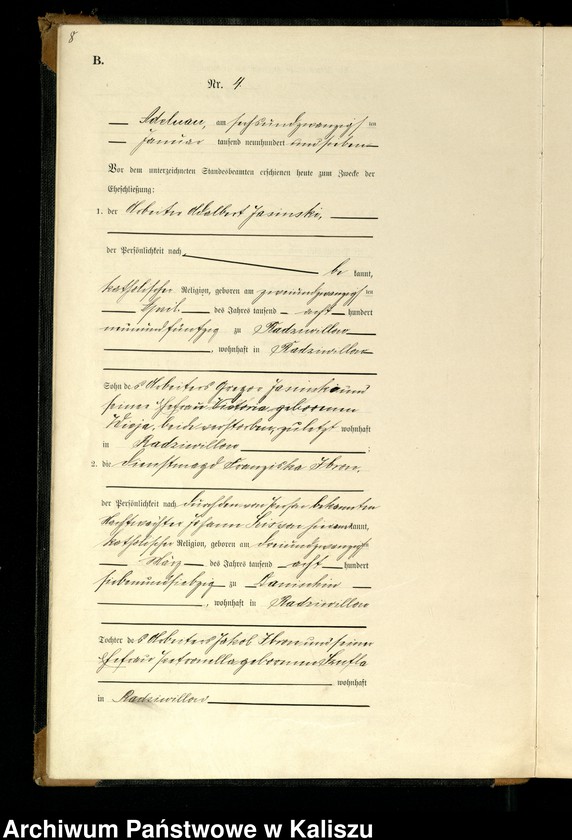 8
B.
Nr. 4.
Adelnau, am sechsundzwanzigsten
Januar tausend neunhundert und sieben
Vor dem unterzeichneten Standesbeamten erschienen heute zum Zwecke der
Eheschließung:
1. der Arbeiter Adalbert Jasinski,
der Persönlichkeit nach
bekannt,
katholischer Religion, geboren am zweiundzwanzigsten
April des Jahres tausend acht hundert
neunundfünfzig zu Radziwillow
, wohnhaft in Radziwillow
Sohn des Arbeiters Gregor Jasinski und
seiner Ehefrau Victoria geborenen
beide verstorben, zuletzt wohnhaft
in Radziwillow ;
2. die Dienstmagd Franziska
der Persönlichkeit nach durch den von Person bekannten
Nachtwächter Johann anerkannt,
katholischer Religion, geboren am dreiundzwanzigsten
März des Jahres tausend acht hundert
siebenundsiebzig zu Danischin
, wohnhaft in Radziwillow
Tochter des Arbeiters Jakob und seiner
Ehefrau Petronella geborenen
wohnhaft
in Radziwillow
Archiwum Państwowe w Kaliszu